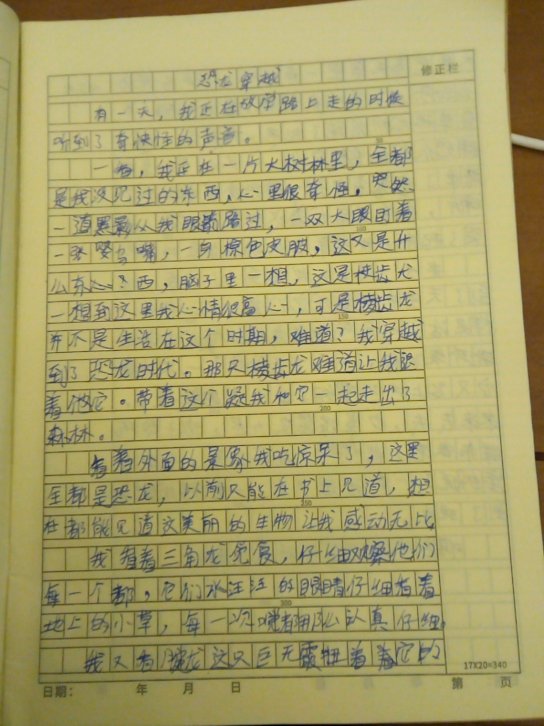 恐龙穿越
修正栏
有一天，我正在放学路上走的时候
听到了奇怪的声音。
一看，我正在一片大树林里，全都
是我没见过的东西，心里很奇怪。突然
一道黑影从我眼前路过，一双大眼盯着
一张嘴，一身棕色皮肤，这又是什
么东西，脑子里一想，这是棱齿龙
一想到这里我心情很高心，可是棱齿龙
并不是生活在这个时期，难道？我穿越
到了恐龙时代。那只棱齿龙难道让我跟
着他它。带着这个疑我和它一起走出了
森林。
看着外面的景像我吃惊呆了，这里
全都是恐龙，以前只能在书上见道，现
在都能见道这美丽的生物让我感动无比
我看着三角龙觅食，仔细观察他们
每一个都，它们水汪汪的眼睛仔细看着
地上的小草，每一次都那么认真仔细。
我又看腕龙这只巨无霸看着它的
50
100
150
200
250
300
17X20=340
日期： 年 月 日 第 页